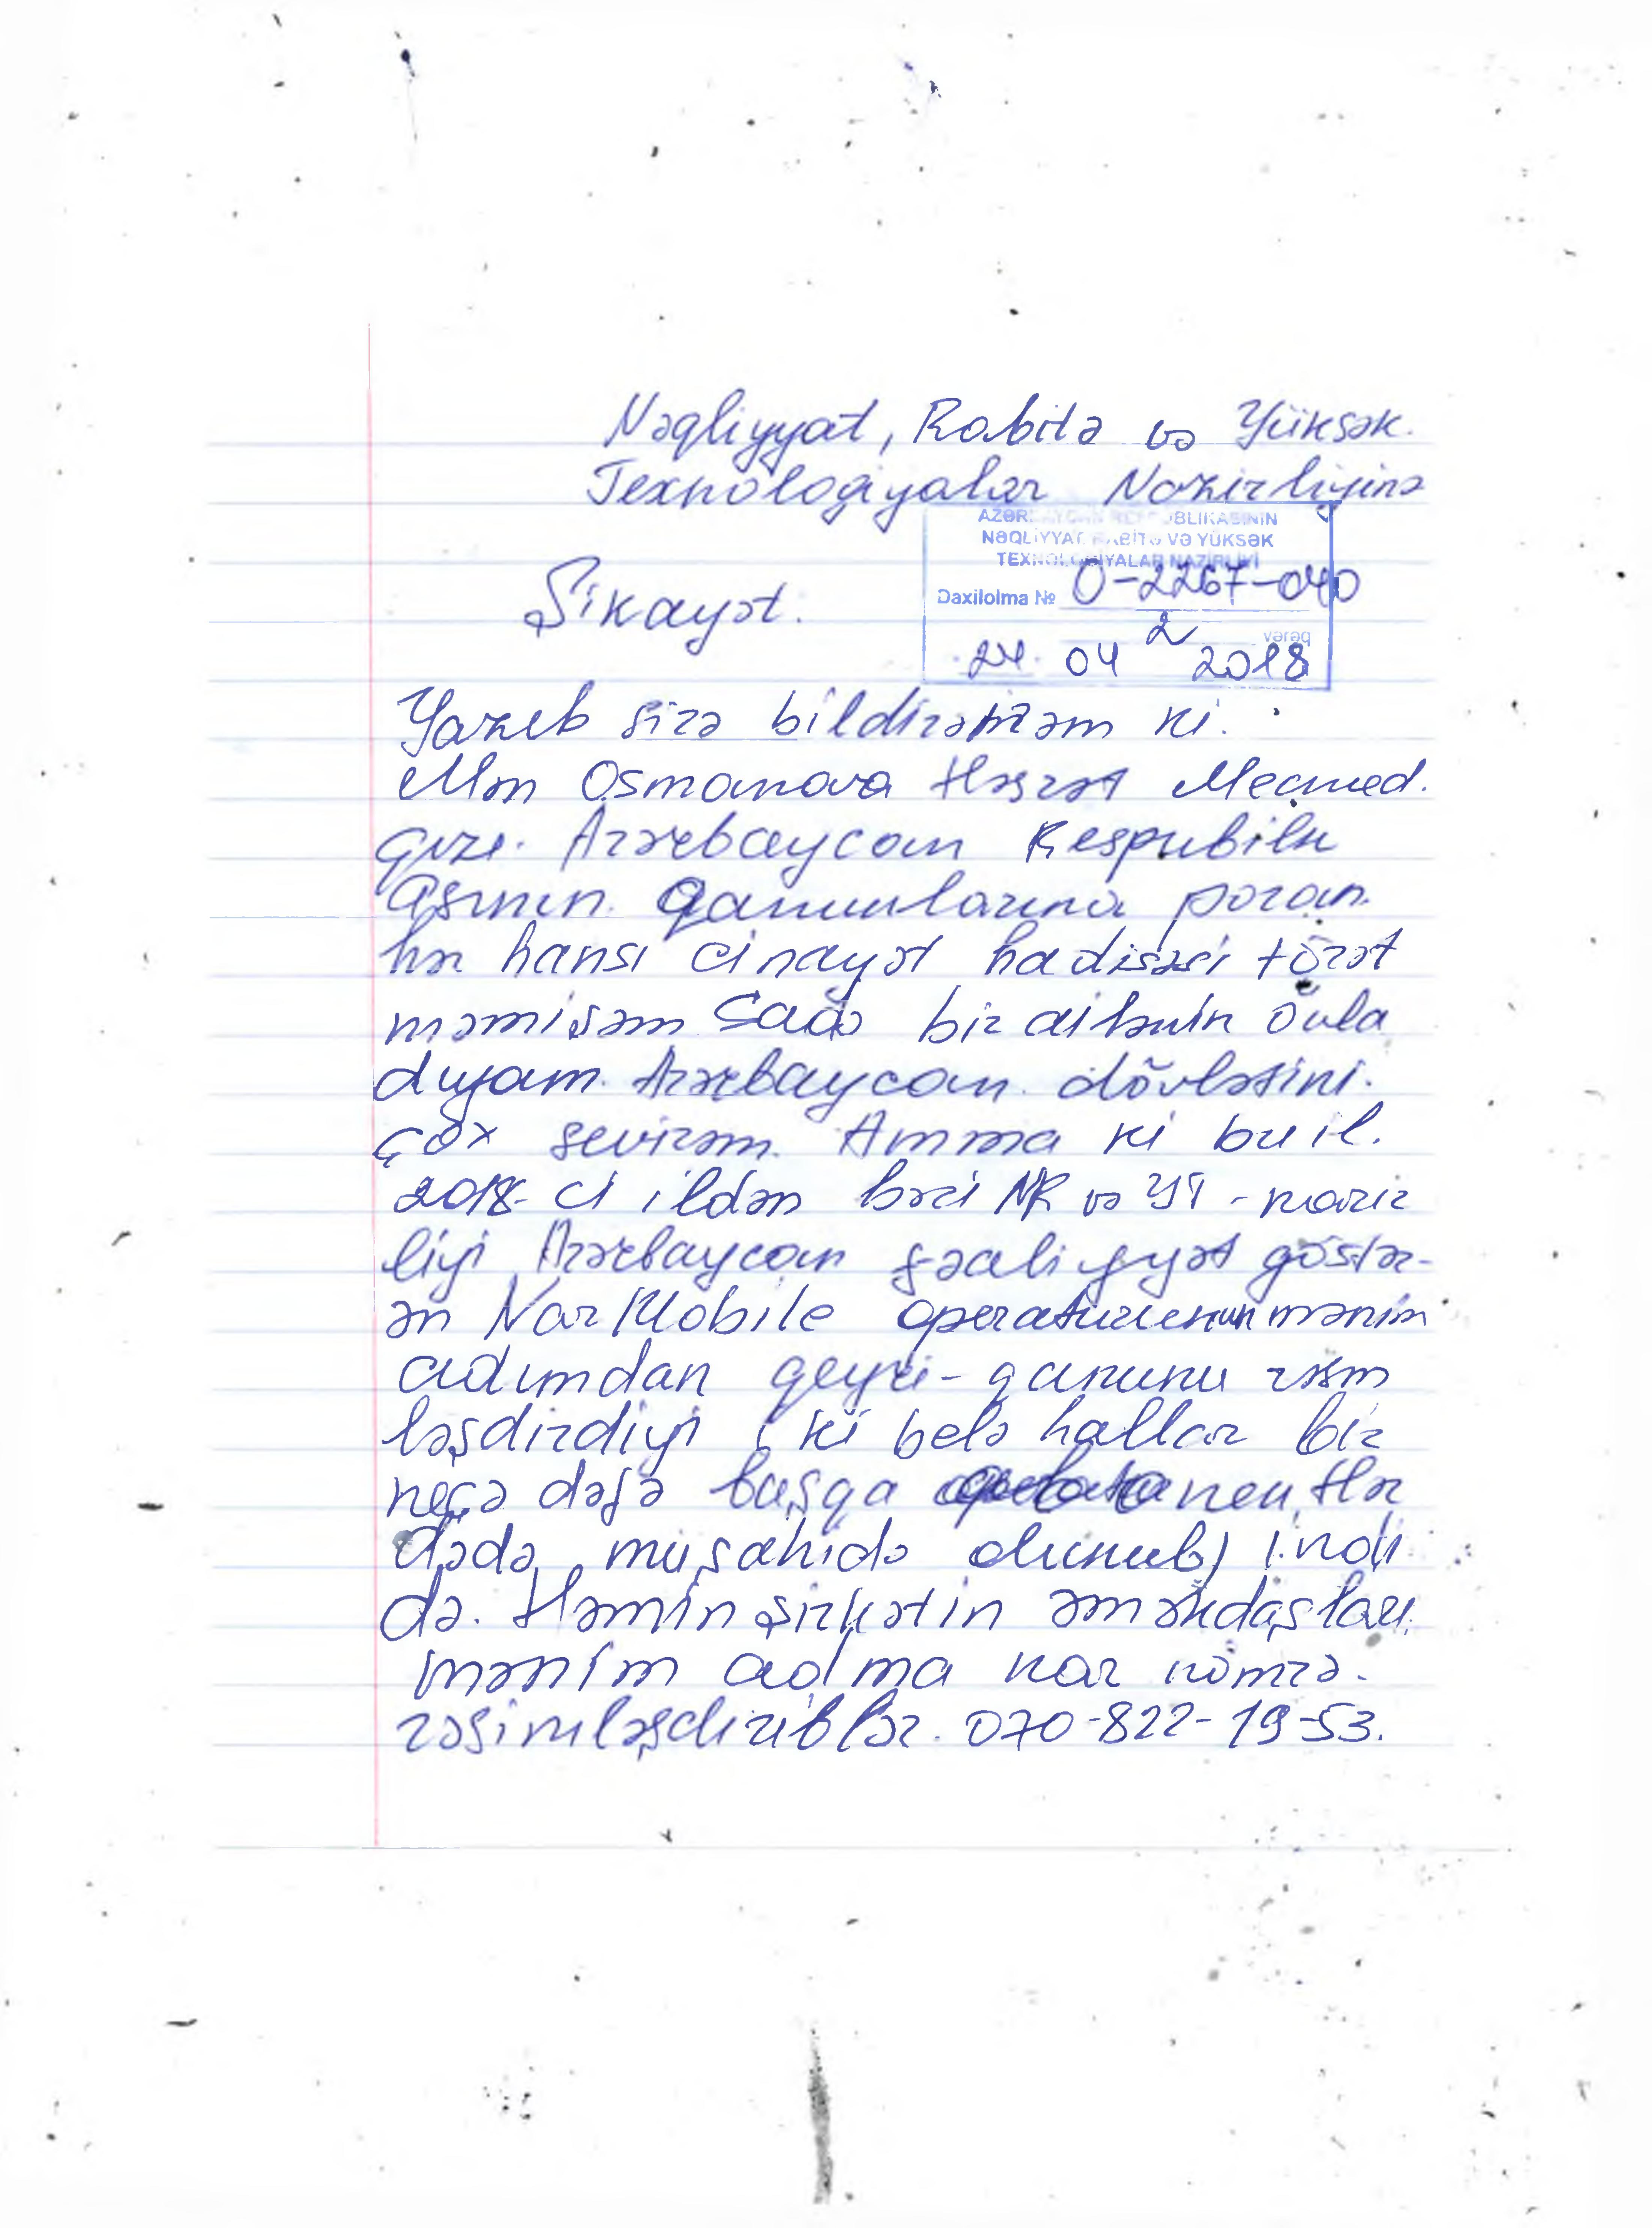 Nəqliyyat, Rabitə və Yüksək.
Texnologiyalar Nazirliyinə
AZƏRBAYCAN RESPUBLİKASININ
NƏQLİYYAT, RABİTƏ VƏ YÜKSƏK
TEXNOLOGİYALAR NAZİRLİYİ
Daxilolma № 0-2267-040
2 vərəq
24. 04 2018
Şikayət.
Yazıb sizə bildirəm ki.
Mən Osmanova Həzrət Mecmed.
qızı. Azərbaycan Respubilk
asının. Qanunlarına pozan.
hər hansı cinayət hadisəsi törət
məmişəm Sadə bir ailənin övla
dıyam. Azərbaycan dövlətini.
çox sevirəm. Amma ki bu il.
2018-ci ildən bəzi NR və YT - nazir
liyi Azərbaycan fəaliyyət göstər-
ən Nar Mobile operaturunun mənim
adımdan qeyri-qanunu rəsm
ləşdirdiyi, ki belə hallar bir
neçə dəfə başqa nentlər
dədə müşahidə olunub) indi
də. Həmin şirkətin əməkdaşları.
mənim adıma nar nömrə.
rəsimləşdiriblər. 070-822-19-53.